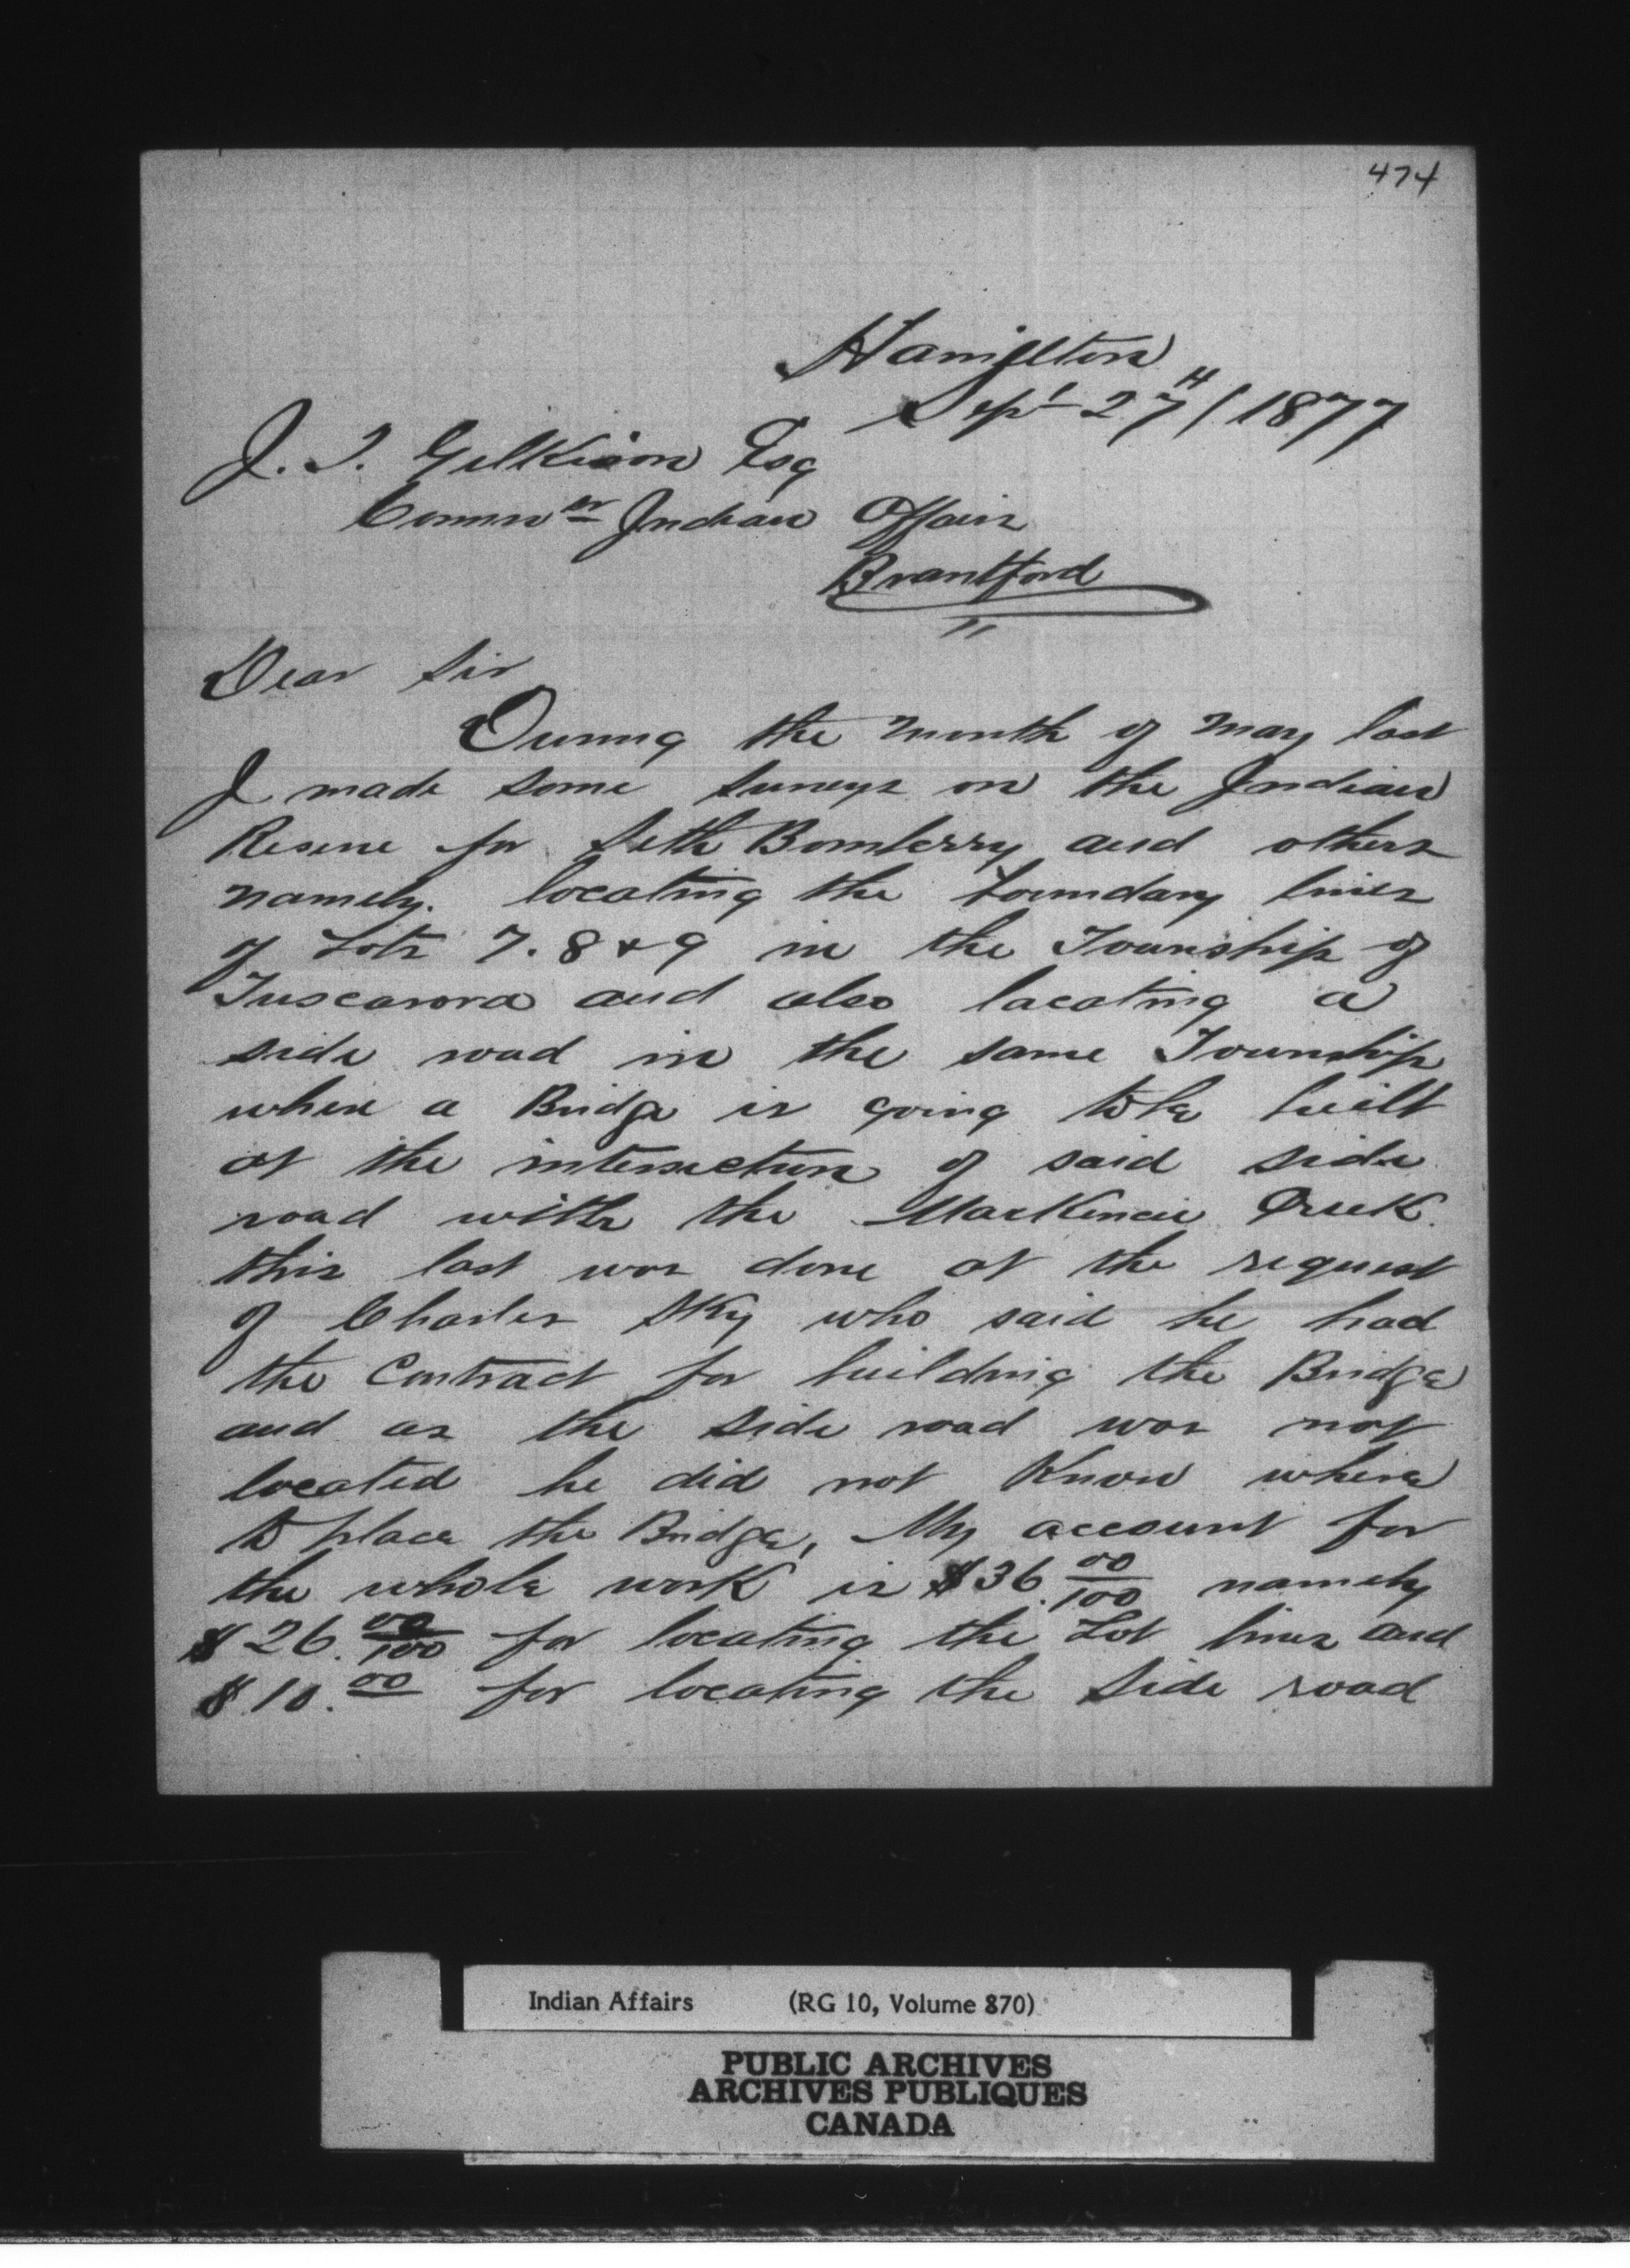 474
Hamilton
Sept 27th/1877
J. T. Gilkison Esq
Commr Indian Affairs
Brantford
Dear Sir
During the month of May last
I made some surveys on the Indian
Reserve for Seth Bomberry and others
namely. locating the boundary lines
of Lots 7. 8 & 9 in the Township of
Tuscarora and also locating a
side road in the same Township
where a Bridge is going to be built
at the intersection of said side
road with the MacKenzie Creek.
this last was done at the request
of Charles Sky who said he had
the Contract for building the Bridge
and as the side road was not
located he did not know where
to place the Bridge, My account for
the whole work is $36.00/100 namely
$26.00/100 for locating the Lot lines and
$10.00 for locating the side road
Indian Affairs (RG 10, Volume 870)
PUBLIC ARCHIVES
ARCHIVES PUBLIQUES
CANADA